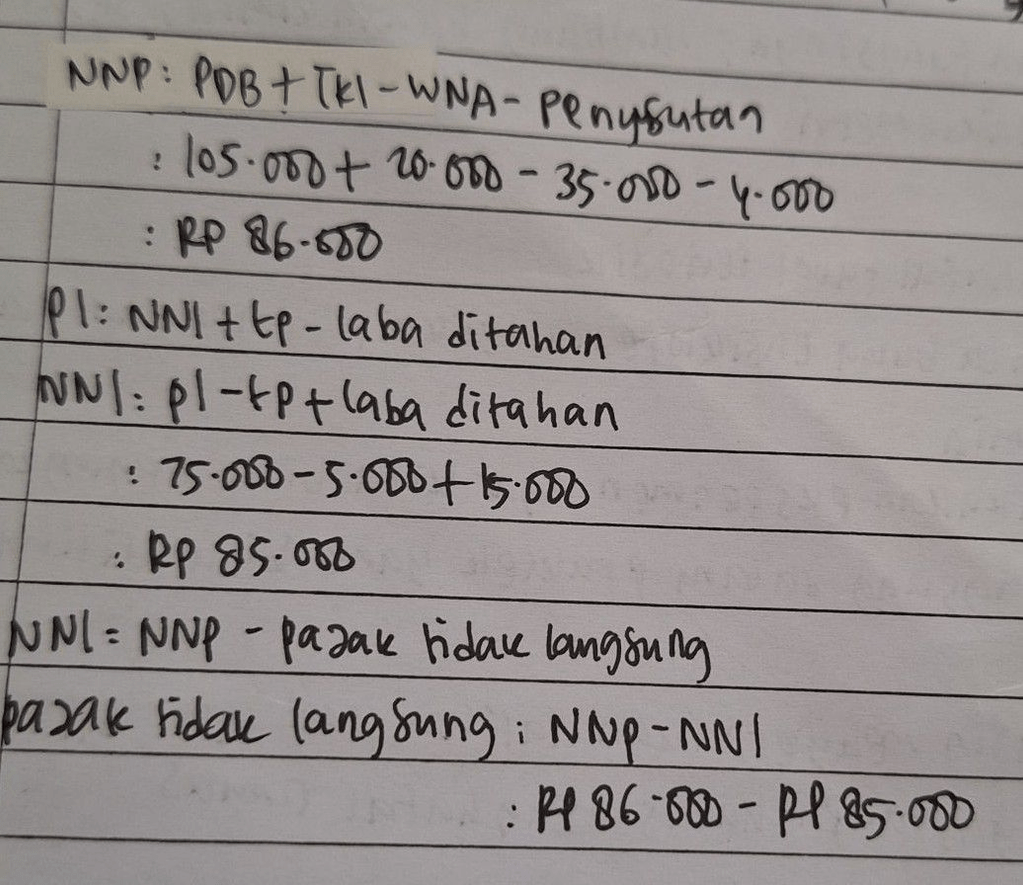 NNP: PDB + TKI - WNA - Penyusutan
: 105.000 + 20.000 - 35.000 - 4.000
: RP 86.000
PI: NNI + tp - laba ditahan
NNI: PI - tp + laba ditahan
: 75.000 - 5.000 + 15.000
: RP 85.000
NNI = NNP - pajak tidak langsung
pajak tidak langsung : NNP - NNI
: RP 86.000 - RP 85.000